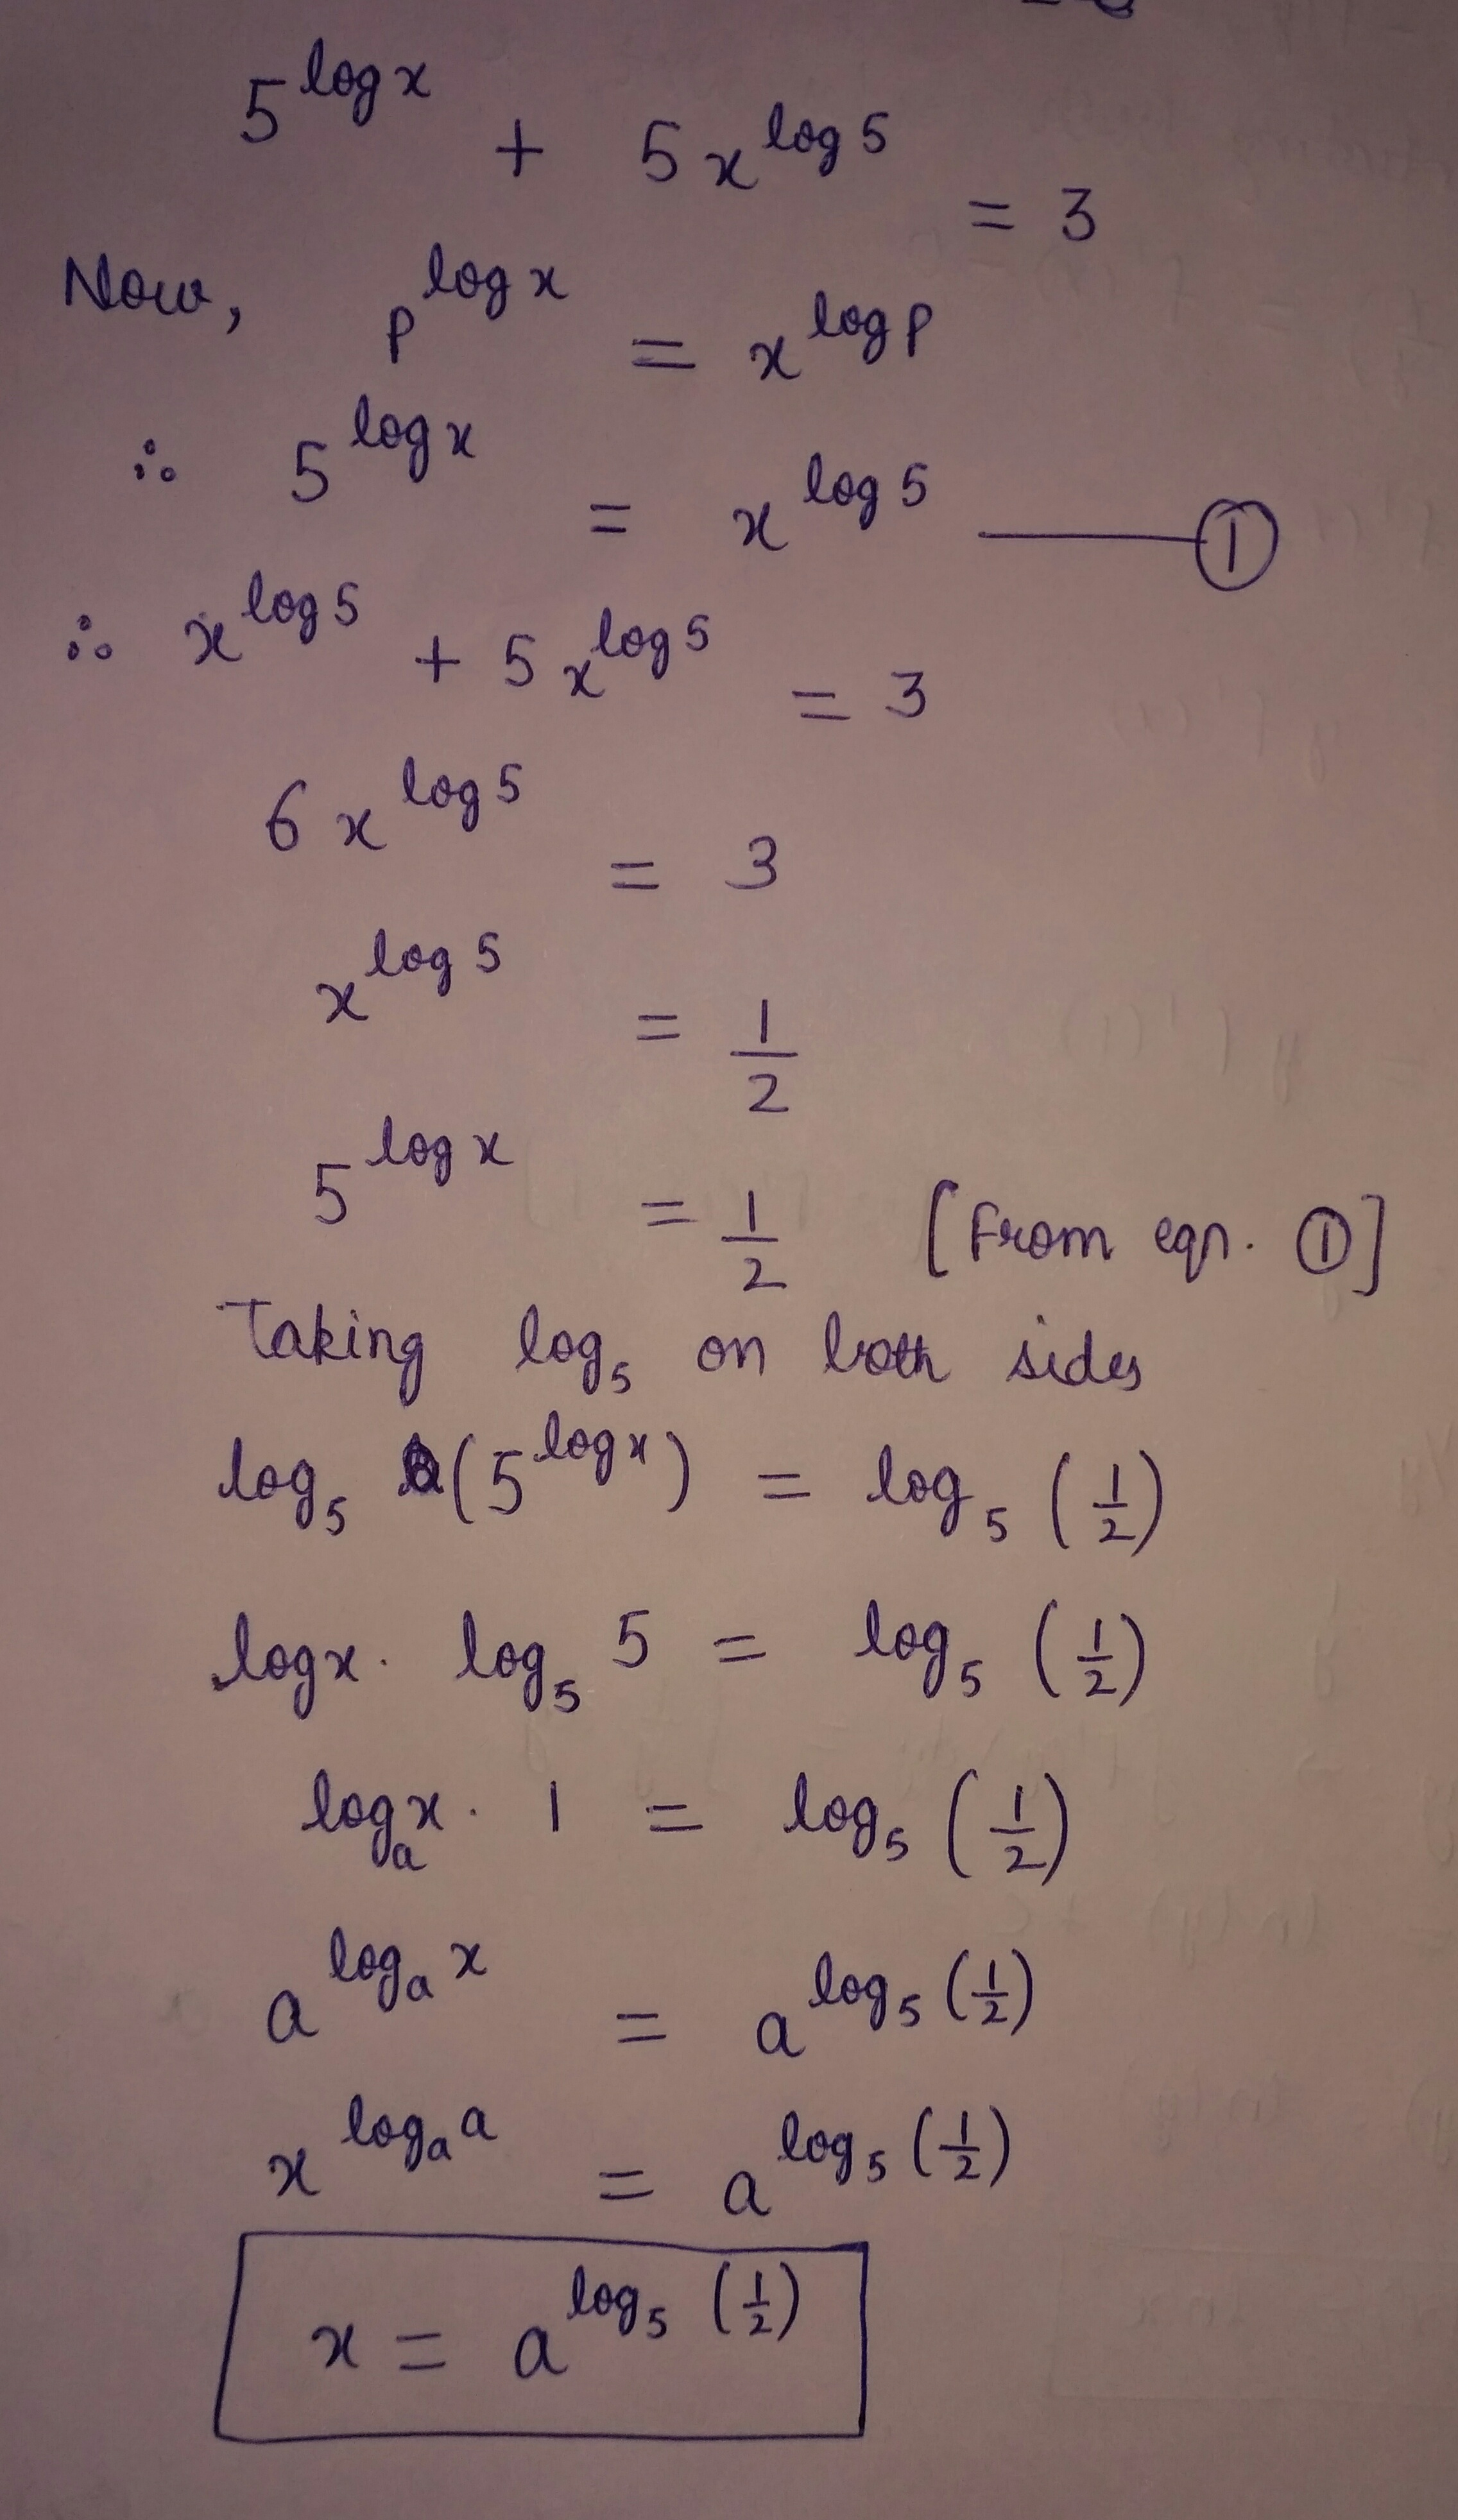 5^{log x} + 5x^{log 5} = 3
Now, p^{log x} = x^{log p}
∴ 5^{log x} = x^{log 5} — ①
∴ x^{log 5} + 5x^{log 5} = 3
6x^{log 5} = 3
x^{log 5} = 1/2
5^{log x} = 1/2 [From eqn. ①]
Taking log₅ on both sides
log₅ (5^{log x}) = log₅ (1/2)
log x · log₅ 5 = log₅ (1/2)
logₐ x · 1 = log₅ (1/2)
a^{logₐ x} = a^{log₅ (1/2)}
x^{logₐ a} = a^{log₅ (1/2)}
x = a^{log₅ (1/2)}